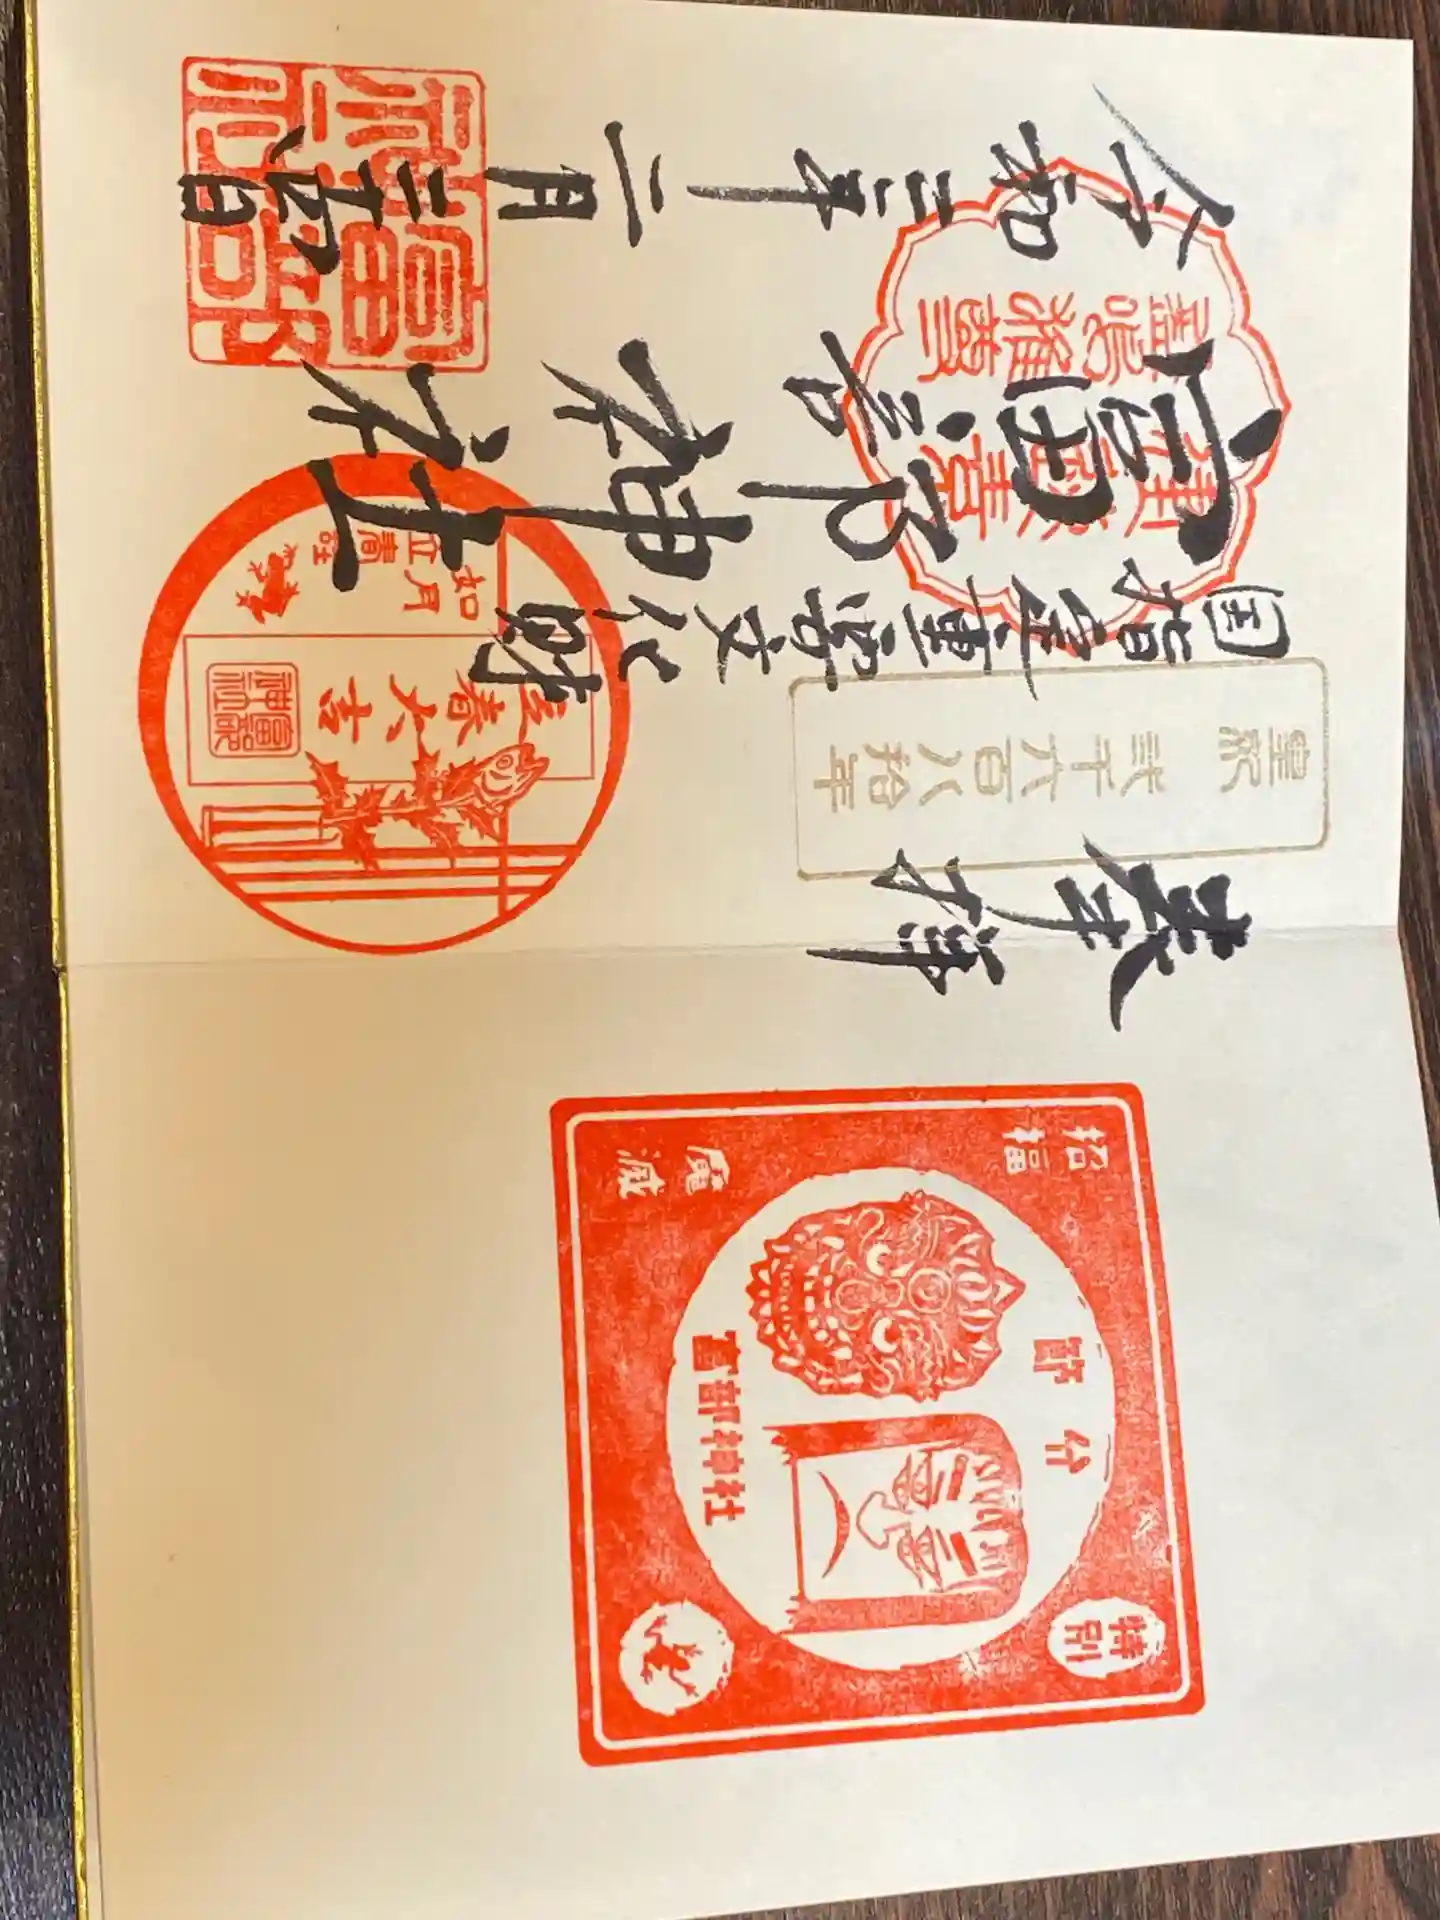 特別
節分
招福
魔滅
富部神社
奉拝
皇紀 弐千六百八拾年
国指定重要文化財
富部神社
如月
立春大吉
富部神社
二月